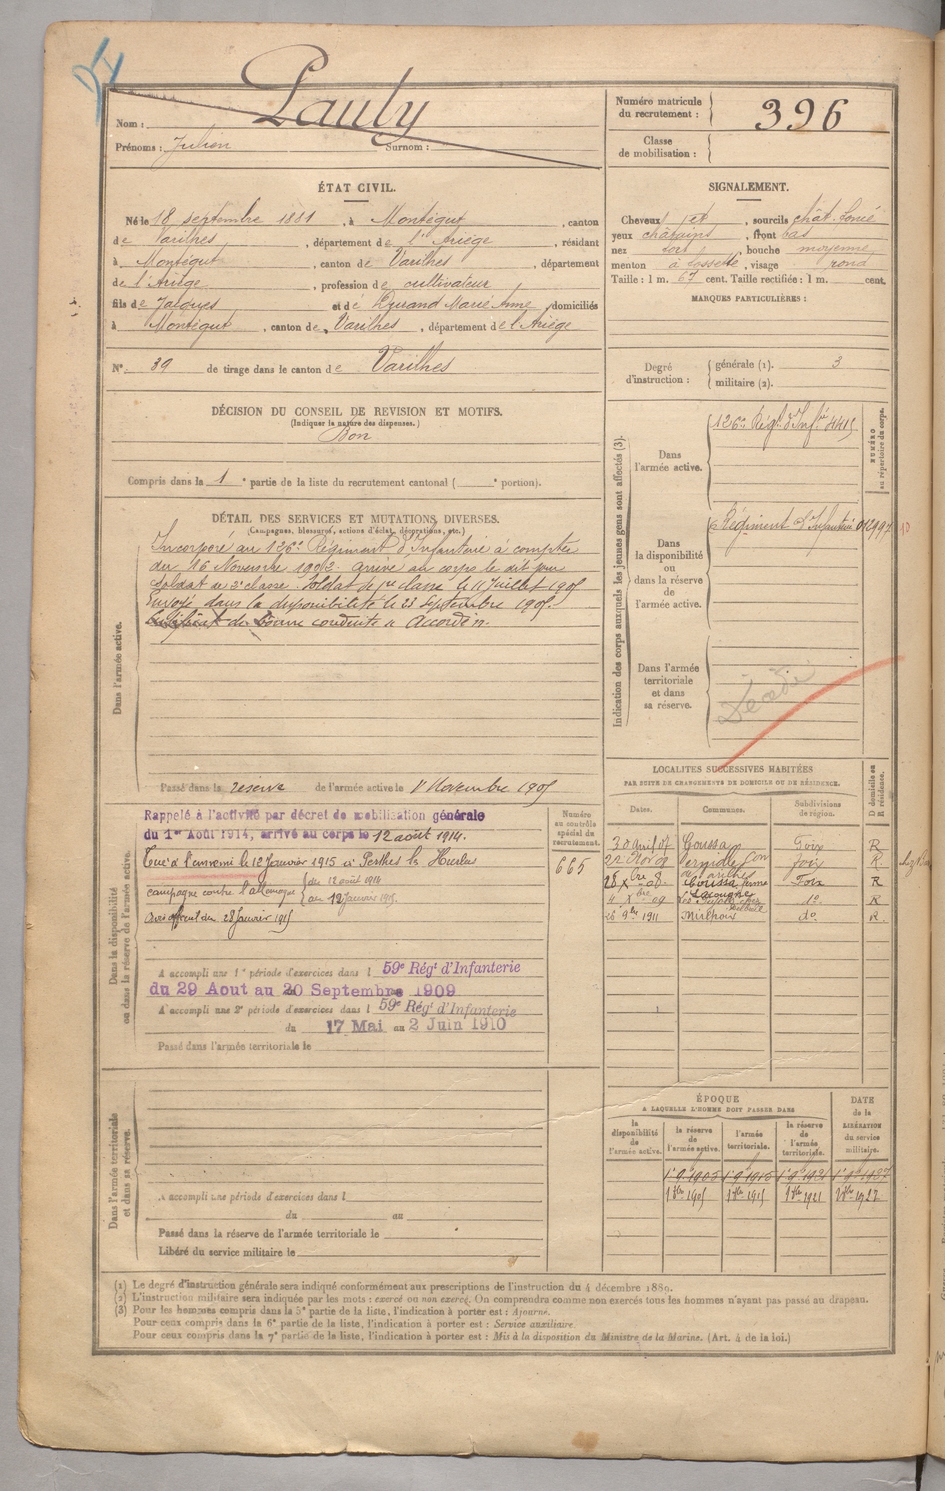 Nom : Pauly
Prénoms : Julien Surnom :
Numéro matricule du recrutement : 396
Classe de mobilisation :
ÉTAT CIVIL.
Né le 18 septembre 1881, à Montégut, canton
de Varilhes, département de l'Ariège, résidant
à Montégut, canton de Varilhes, département
de l'Ariège, profession de cultivateur
fils de Jacques et de Durand Marie Anne domiciliés
à Montégut, canton de Varilhes, département de l'Ariège
N° 39 de tirage dans le canton de Varilhes
SIGNALEMENT.
Cheveux, sourcils chât. foncé
yeux châtains, front bas
nez, bouche moyenne
menton à fossette, visage rond
Taille : 1 m. 67 cent. Taille rectifiée : 1 m. cent.
MARQUES PARTICULIÈRES :
Degré d'instruction : générale (1). 3
militaire (2).
DÉCISION DU CONSEIL DE REVISION ET MOTIFS.
(Indiquer la nature des dispenses.)
Bon
Compris dans la 1e partie de la liste du recrutement cantonal ( e portion).
DÉTAIL DES SERVICES ET MUTATIONS DIVERSES.
(Campagnes, blessures, actions d'éclat, décorations, etc.)
Dans l'armée active.
Incorporé au 126e Régiment d'Infanterie à compter
du 16 Novembre 1902. arrivé au corps le dit jour
soldat de 2e classe. Soldat de 1re classe le 11 Juillet 1905
Envoyé dans la disponibilité le 23 septembre 1905.
Certificat de Bonne conduite « Accordé ».
Passé dans la réserve de l'armée active le 1r Novembre 1905
Indication des corps auxquels les jeunes gens sont affectés (3).
NUMÉRO au répertoire du corps.
Dans l'armée active.
126e Régt d'Infie 4415
Dans la disponibilité ou dans la réserve de l'armée active.
Régiment d'Infanterie 012997
Dans l'armée territoriale et dans sa réserve.
Décédé
Dans la disponibilité ou dans la réserve de l'armée active.
Rappelé à l'activité par décret de mobilisation générale
du 1er Août 1914, arrivé au corps le 12 août 1914.
Tué à l'ennemi le 12 Janvier 1915 à Perthes les Hurlus
campagne contre l'allemagne { du 12 août 1914
au 12 janvier 1915.
Avis officiel du 28 Janvier 1915
Numéro au contrôle spécial du recrutement.
665
A accompli une 1e période d'exercices dans l 59e Régt d'Infanterie
du 29 Aout au 20 Septembre 1909
A accompli une 2e période d'exercices dans l 59e Régt d'Infanterie
du 17 Mai au 2 Juin 1910
Passé dans l'armée territoriale le
LOCALITES SUCCESSIVES HABITÉES
PAR SUITE DE CHANGEMENTS DE DOMICILE OU DE RÉSIDENCE.
Dates. Communes. Subdivisions de région. D domicile ou R résidence.
30 avril 07 Coussa Foix R
22 Foix R.
Coussa ferme Foix R
do R
26 9bre 1911 Mirlhous do. R.
ÉPOQUE
A LAQUELLE L'HOMME DOIT PASSER DANS
DATE de la LIBÉRATION du service militaire.
la disponibilité de l'armée active. la réserve de l'armée active. l'armée territoriale. la réserve de l'armée territoriale.
1r 9e 1905 1r 9e 1915 1r 9e 1921 1r 9e 1927
1 9bre 1905 1 9bre 1915 1 9bre 1921 1927
Dans l'armée territoriale et dans sa réserve.
A accompli une période d'exercices dans l
du au
Passé dans la réserve de l'armée territoriale le
Libéré du service militaire le
(1) Le degré d'instruction générale sera indiqué conformément aux prescriptions de l'instruction du 4 décembre 1889.
(2) L'instruction militaire sera indiquée par les mots : exercé ou non exercé. On comprendra comme non exercés tous les hommes n'ayant pas passé au drapeau.
(3) Pour les hommes compris dans la 5e partie de la liste, l'indication à porter est : Ajourné.
Pour ceux compris dans la 6e partie de la liste, l'indication à porter est : Service auxiliaire.
Pour ceux compris dans la 7e partie de la liste, l'indication à porter est : Mis à la disposition du Ministre de la Marine. (Art. 4 de la loi.)